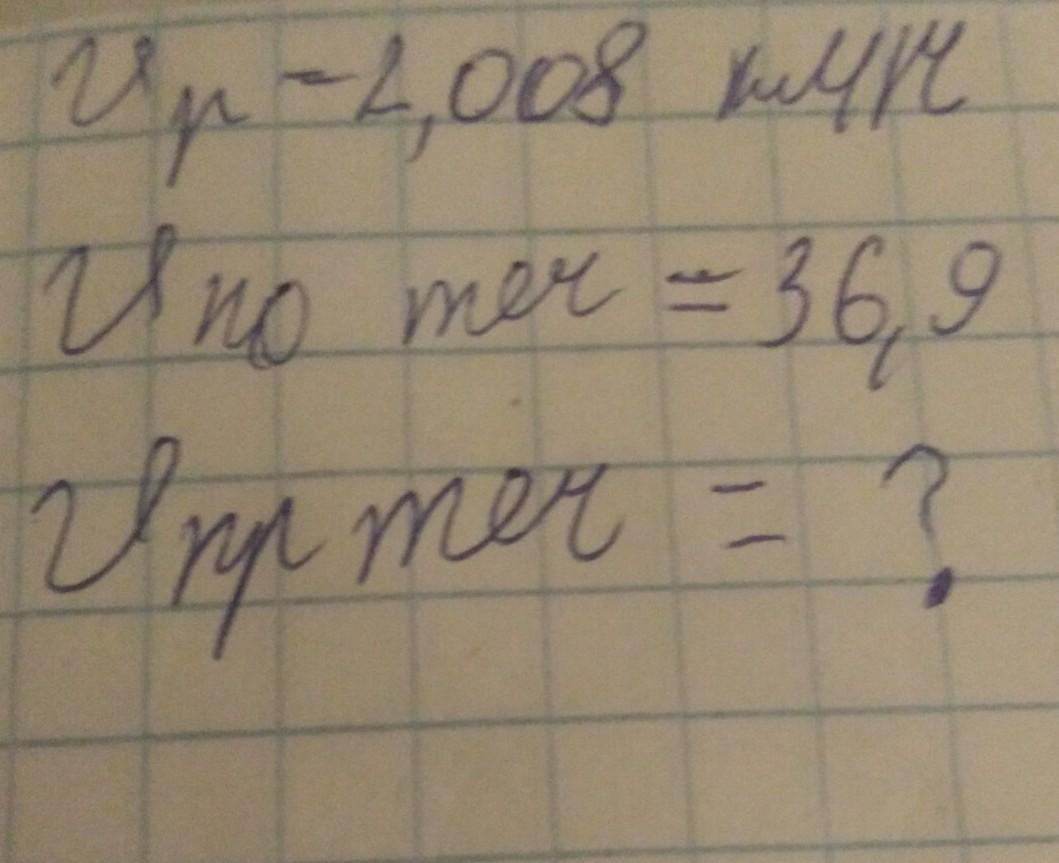 Vр = 2,008 км/ч
Vпо теч = 36,9
Vпр теч = ?